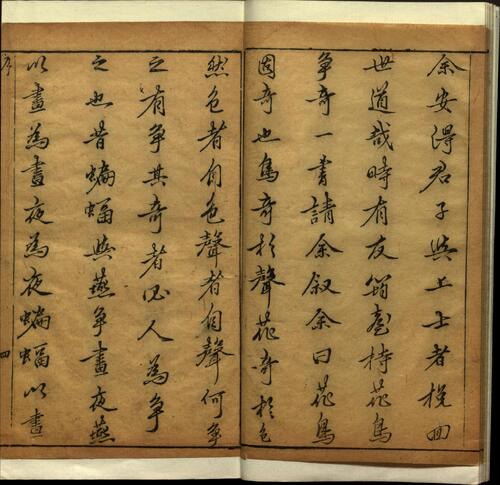 余安得君子與上士者挽回
世道哉時有友筠臺持花鳥
爭奇一書請余叙余曰花鳥
固奇也鳥奇於聲花奇於色
然色者自色聲者自聲何爭
之有爭其奇者以人為爭
之也昔蝙蝠與燕爭晝夜燕
以晝為晝夜為夜蝙蝠以晝
序
四